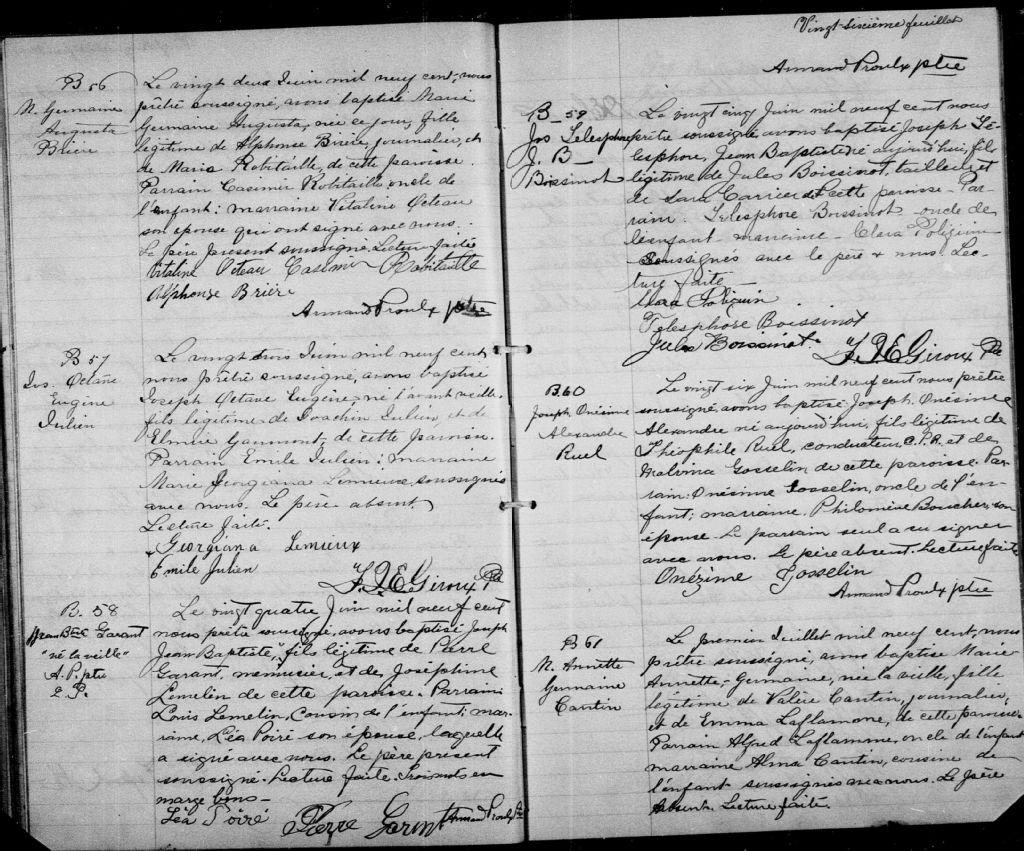 B 56
M. Germaine
Augusta
Brière
Le vingt deux Juin mil neuf cent, nous
prêtre soussigné, avons baptisé Marie
Germaine Augusta, née ce jour, fille
légitime de Alphonse Brière, journalier, et
de Maria Robitaille, de cette paroisse.
Parrain Casimir Robitaille, oncle de
l'enfant: marraine Vitaline Octeau
son épouse qui ont signé avec nous.
Le père présent soussigné. Lecture faite
Vitaline Octeau Casimir Robitaille
Alphonse Brière
Armand Proulx ptre
B 57
Jos. Octave
Eugène
Julien
Le vingt trois Juin mil neuf cent
nous prêtre soussigné, avons baptisé
Joseph Octave Eugène, né l'avant veille
fils légitime de Joachin Julien, et de
Elmire Gaumont, de cette paroisse.
Parrain Emile Julien: marraine
Marie Georgiana Lemieux, soussignés
avec nous. Le père absent.
Lecture faite.
Georgiana Lemieux
Emile Julien
J. A E Giroux Ptre
B. 58
Jean Bte Garant
"né la veille"
A. P. ptr
L. P.
Le vingt quatre Juin mil neuf cent
nous prêtre soussigné, avons baptisé Joseph
Jean Baptiste," fils légitime de Pierre
Garant, menuisier, et de Joséphine
Lemelin de cette paroisse. Parrain
Louis Lemelin, cousin de l'enfant; mar-
raine, Léa Poiré son épouse, laquelle
a signé avec nous. Le père présent
soussigné. Lecture faite. Trois mots en
marge bons-
Léa Poiré Pierre Garent Armand Proulx Ptre
Vingt-sixième feuillet
Armand Proulx ptre
B_ 59
Jos Telesphore
J. B_
Boissinot
Le vingt cinq Juin mil neuf cent nous
prêtre soussigné avons baptisé Joseph Té-
lesphore, Jean Baptiste né aujourd'hui, fils
légitime de Jules Boissinot, tailleur et
de Sara Carrier de cette paroisse_ Par-
rain. Telesphore Boissinot oncle de
l'enfant marraine_ Clara Poliquin
soussignés avec le père & nous. Lec-
ture faite_
Clara Poliquin
Telesphore Boissinot
Jules Boissinot
J. A E Giroux Ptre
B60
Joseph Onésime
Alexandre
Ruel
Le vingt six Juin mil neuf cent nous prêtre
soussigné, avons baptisé Joseph Onésime
Alexandre né aujourd'hui, fils légitime de
Théophile Ruel, conducteur C.P.R. et de
Malvina Gosselin de cette paroisse. Par-
rain: Onésime Gosselin, oncle de l'en-
fant; marraine Philomène Boucher, son
épouse. Le parrain seul a su signer
avec nous. Le père absent. Lecture faite
Onézime Gosselin
Armand Proulx ptre
B 61
M. Annette
Germaine
Cantin
Le premier Juillet mil neuf cent, nous
prêtre soussigné, avons baptisé Marie
Annette-Germaine, née la veille, fille
légitime de Valère Cantin, journalier,
et de Emma Laflamme, de cette paroisse
Parrain Alfred Laflamme, oncle de l'enfant
marraine Alma Cantin, cousine de
l'enfant soussignés avec nous. Le père
absent. Lecture faite.